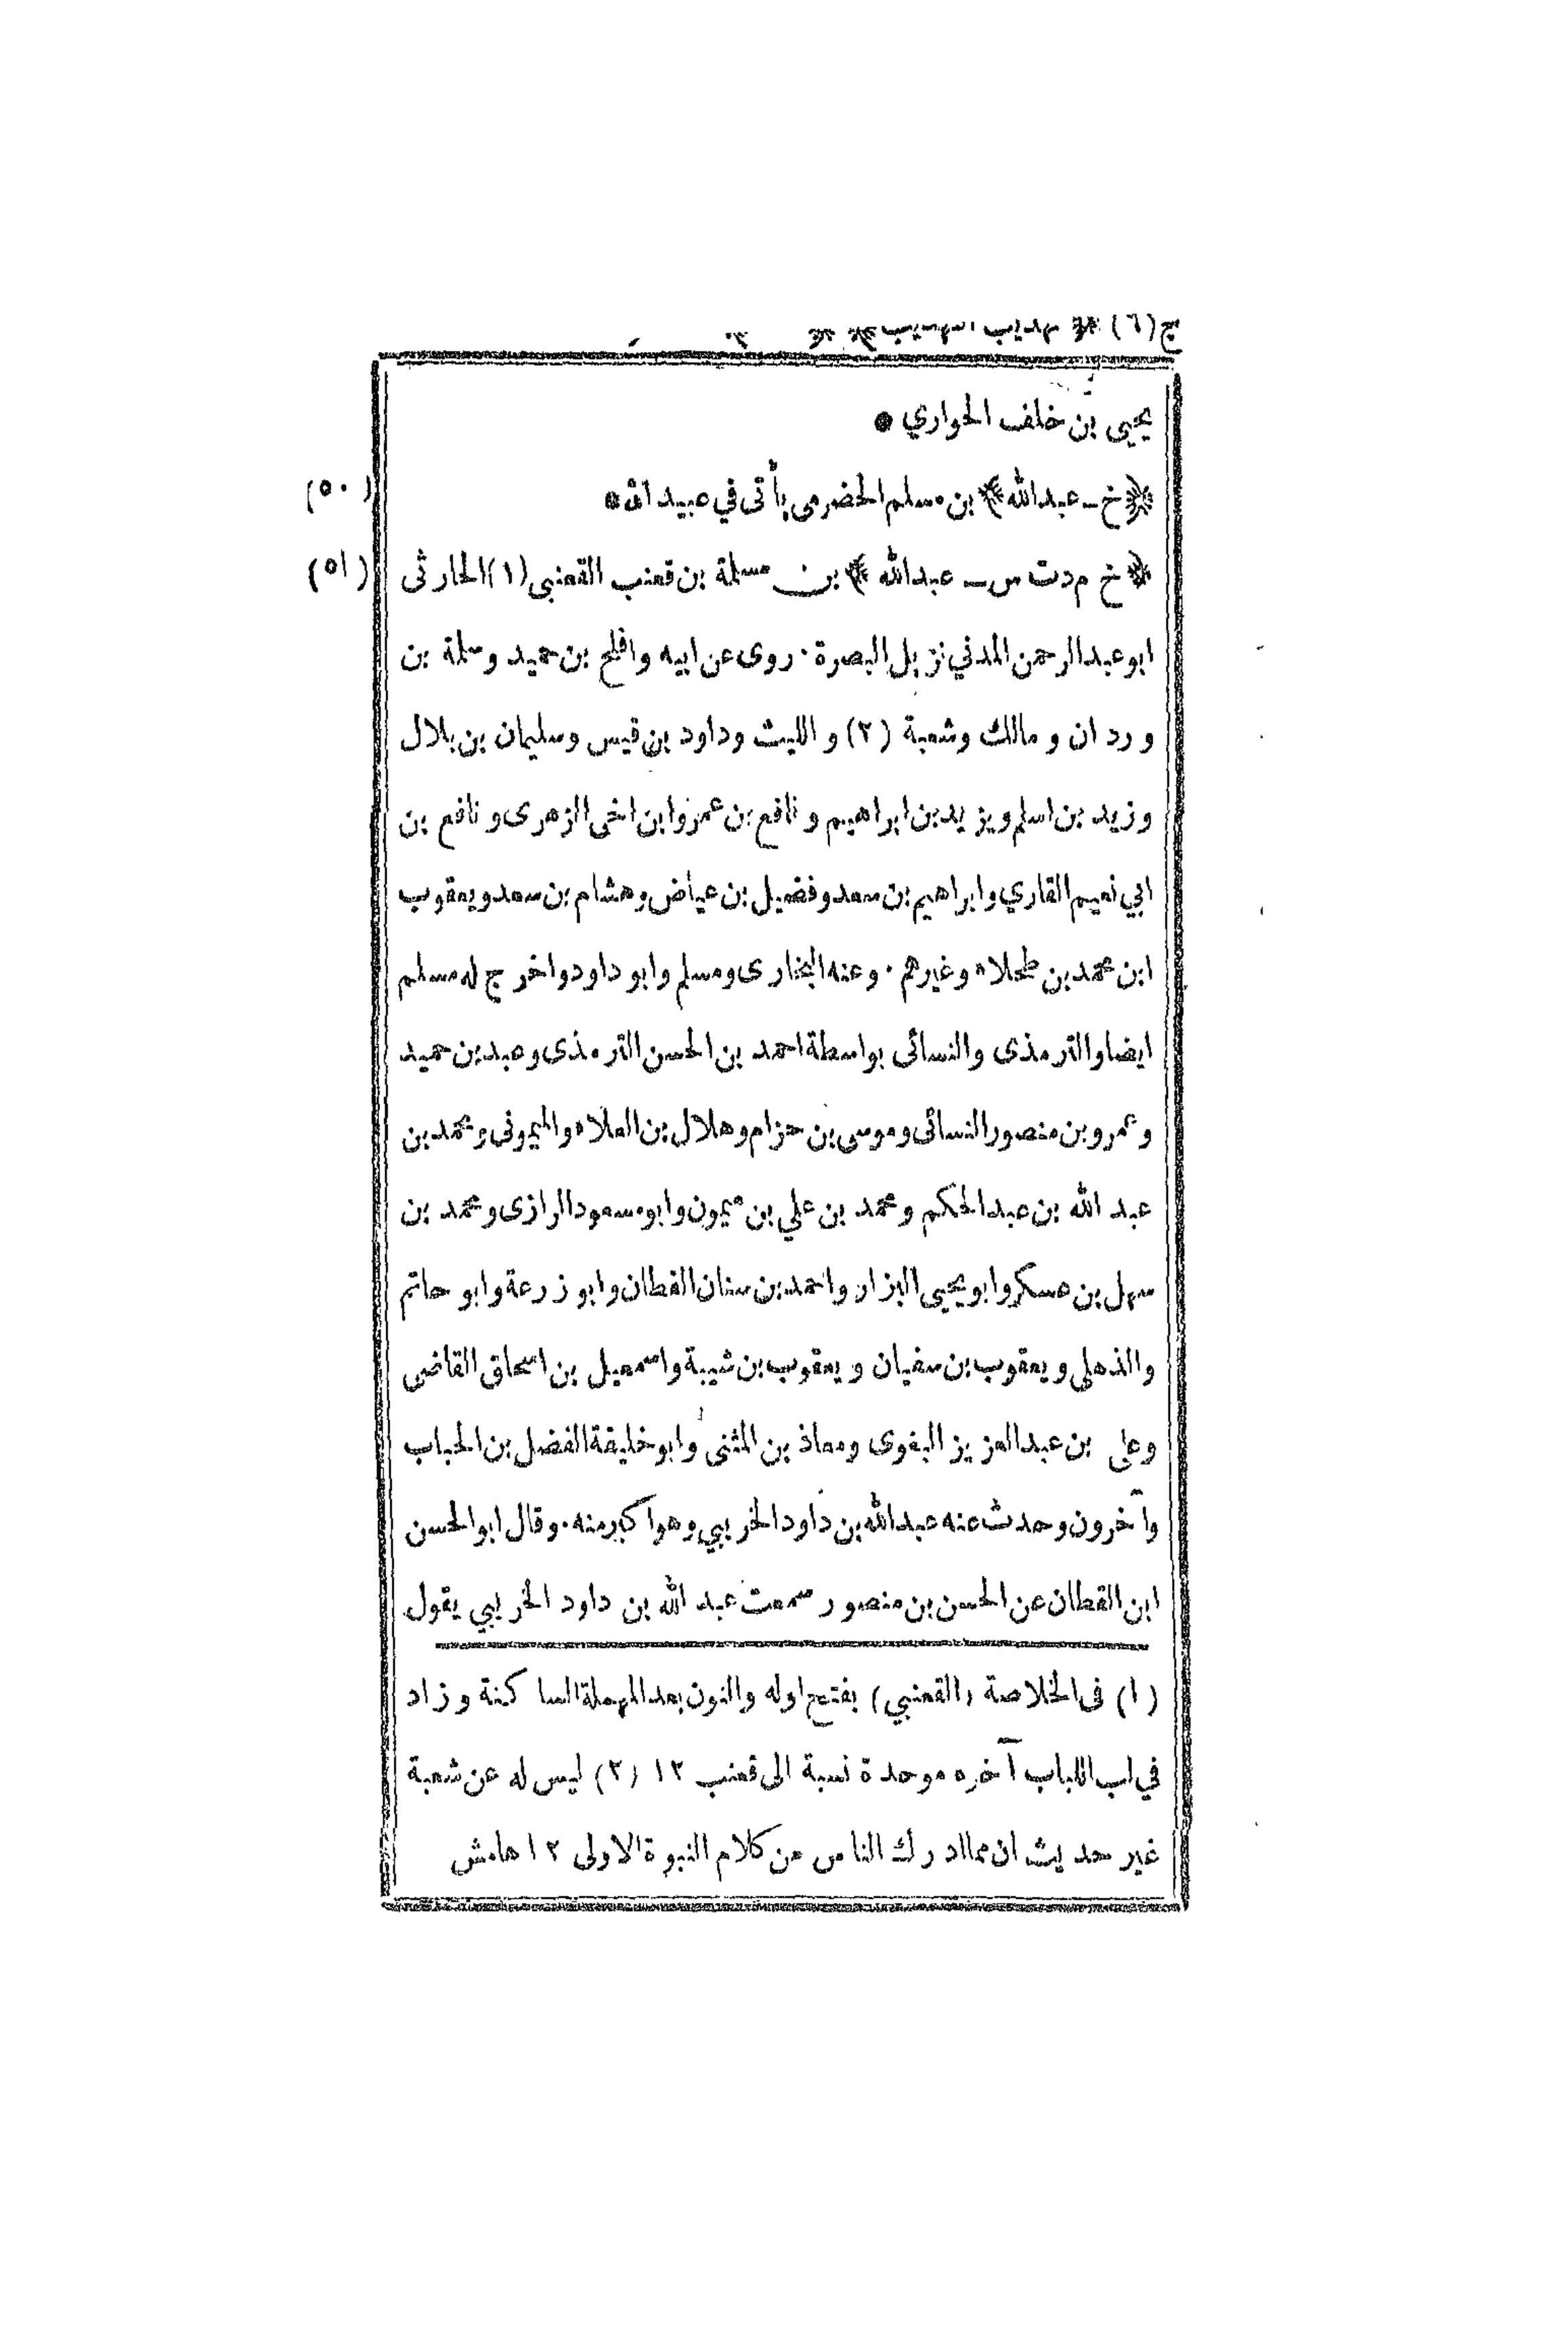 ج (٦) ﴿ تهذيب التهذيب ﴾
يحيى بن خلف الحواري •
﴿ خ - عبدالله ﴾ بن مسلم الحضرمى يأتى في عبيد الله •
(٥٠)
﴿ خ م د ت س - عبدالله ﴾ بن مسلمة بن قعنب القعنبى (١) الحارثى
(٥١)
ابو عبدالرحمن المدني نزيل البصرة . روى عن ابيه وافلح بن حميد وسلمة بن
وردان و مالك وشعبة (٢) و الليث وداود بن قيس وسليمان بن بلال
وزيد بن اسلم ويزيد بن ابراهيم و نافع بن عمر وابن اخى الزهرى و نافع بن
ابي نعيم القاري وابراهيم بن سعد وفضيل بن عياض وهشام بن سعد ويعقوب
ابن محمد بن طحلاء وغيرهم . وعنه البخارى ومسلم وابو داود واخرج له مسلم
ايضا والترمذى والنسائى بواسطة احمد بن الحسن الترمذى وعبد بن حميد
وعمرو بن منصور النسائى وموسى بن حزام وهلال بن العلاء والميمونى ومحمد بن
عبد الله بن عبدالحكم ومحمد بن علي بن ميمون وابو مسعود الرازى ومحمد بن
سهل بن عسكر وابو يحيى البزار واحمد بن سنان القطان وابو زرعة وابو حاتم
والذهلى ويعقوب بن سفيان و يعقوب بن شيبة واسمعيل بن اسحاق القاضى
وعلى بن عبدالعزيز البغوى ومعاذ بن المثنى وابو خليفة الفضل بن الحباب
وآخرون وحدث عنه عبدالله بن داود الخريبي وهو اكبر منه . وقال ابو الحسن
ابن القطان عن الحسن بن منصور سمعت عبد الله بن داود الخريبي يقول
(١) فى الخلاصة (القعنبي) بفتح اوله والنون بعد المهملة الساكنة وزاد
في لب اللباب آخره موحدة نسبة الى قعنب ١٢ (٢) ليس له عن شعبة
غير حديث ان مما ادرك الناس من كلام النبوة الاولى ١٢ هامش